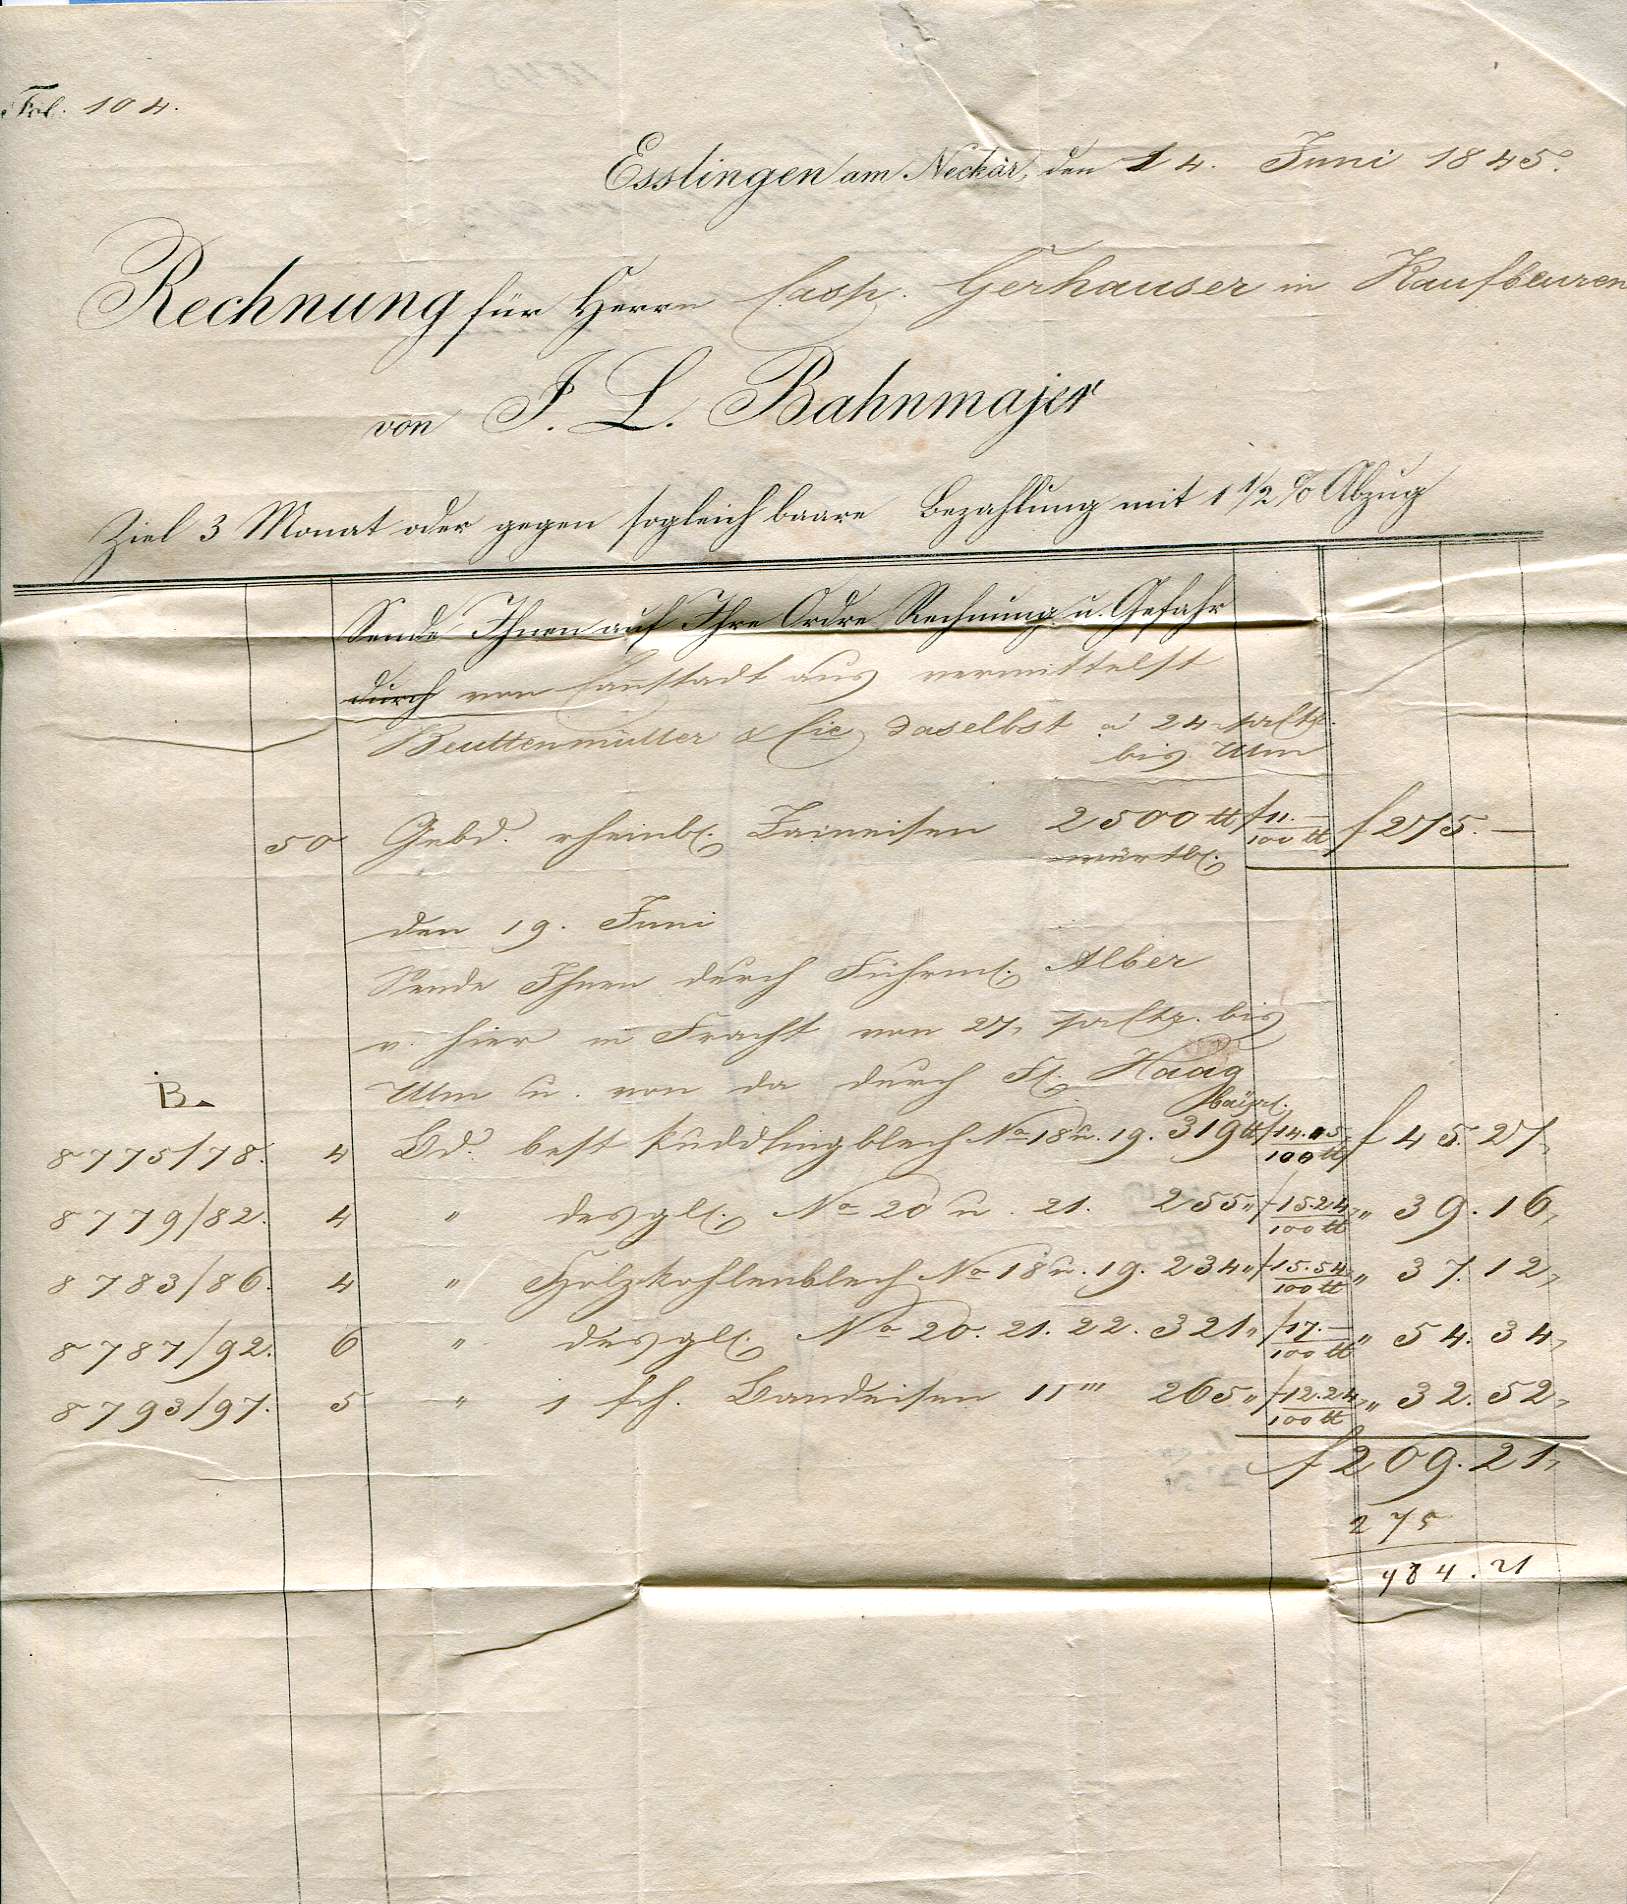 Fol. 104.
Esslingen am Neckar, den 14. Juni 1845.
Rechnung für Herrn Casp. Gerhauser in Kaufbeuren
von J. L. Bahnmajer
Ziel 3 Monat oder gegen sogleich baare Bezahlung mit 1 1/2 % Abzug
Sende Ihnen auf Ihre Ordre Rechnung u. Gefahr
durch von Cannstadt aus vermittelst
Beuttenmüller & Cie daselbst à 24 pr Ctr.
bis Ulm
50 Gebd. rheinl. Zaineisen 2500 ℔ f 11.— / 100 ℔ f 275.—
würtbg.
den 19. Juni
Sende Ihnen durch Fuhrm. Alber
v. hier in Fracht von 27, pr Ctr. bis
Ulm u. von da durch Haag
B.
bayr.
8775/78. 4 Bd. best Puddlingblech No 18 u. 19. 319 ℔ f 14.15, / 100 ℔ f 45.27,
8779/82. 4 " desgl. No 20 u. 21. 255 " f 15.24, / 100 ℔ " 39.16,
8783/86. 4 " Holzkohlenblech No 18 u. 19. 234 " f 15.54, / 100 ℔ " 37.12,
8787/92. 6 " desgl. No 20. 21. 22. 321 " f 17.— / 100 ℔ " 54.34,
8793/97. 5 " 1 sch. Bandeisen 11''' 265 " f 12.24, / 100 ℔ " 32.52,
f 209.21,
275
484.21